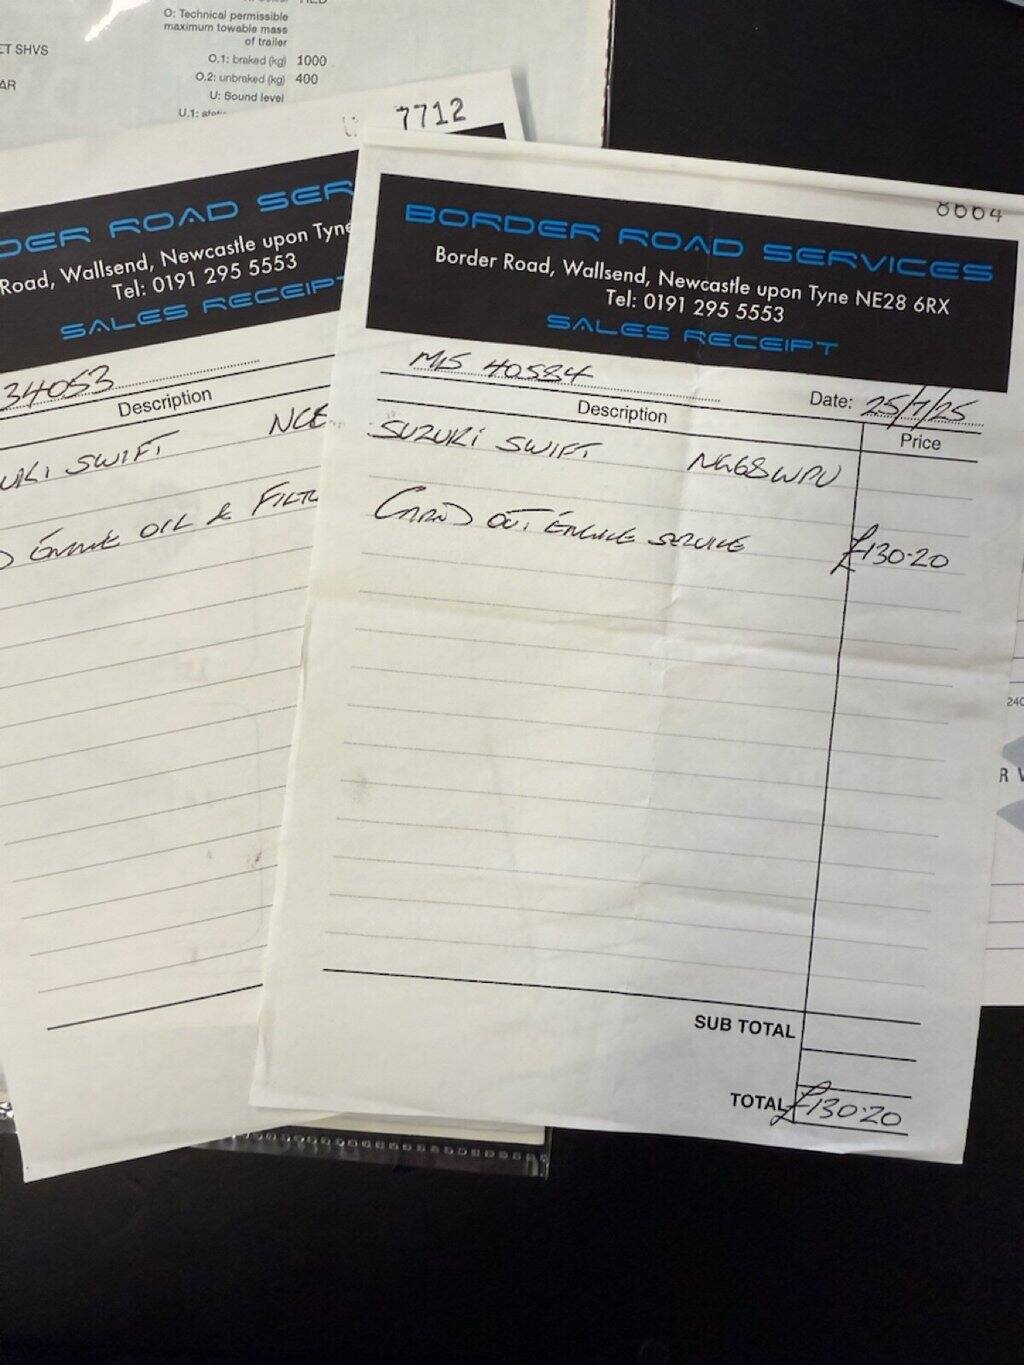 O: Technical permissible
maximum towable mass
of trailer
O.1: braked (kg) 1000
O.2: unbraked (kg) 400
U: Sound level
U.1:
ET SHVS
AR
7712
DER ROAD SER
Road, Wallsend, Newcastle upon Tyne
Tel: 0191 295 5553
SALES RECEIPT
34053
Description
UKI SWIFT
ENGINE OIL &
8004
BORDER ROAD SERVICES
Border Road, Wallsend, Newcastle upon Tyne NE28 6RX
Tel: 0191 295 5553
SALES RECEIPT
MLS 40584
Date: 25/7/25
Description
Price
SUZUKI SWIFT NG68WPU
CARRIED OUT ENGINE SERVICE £130.20
SUB TOTAL
TOTAL £130.20
240
R